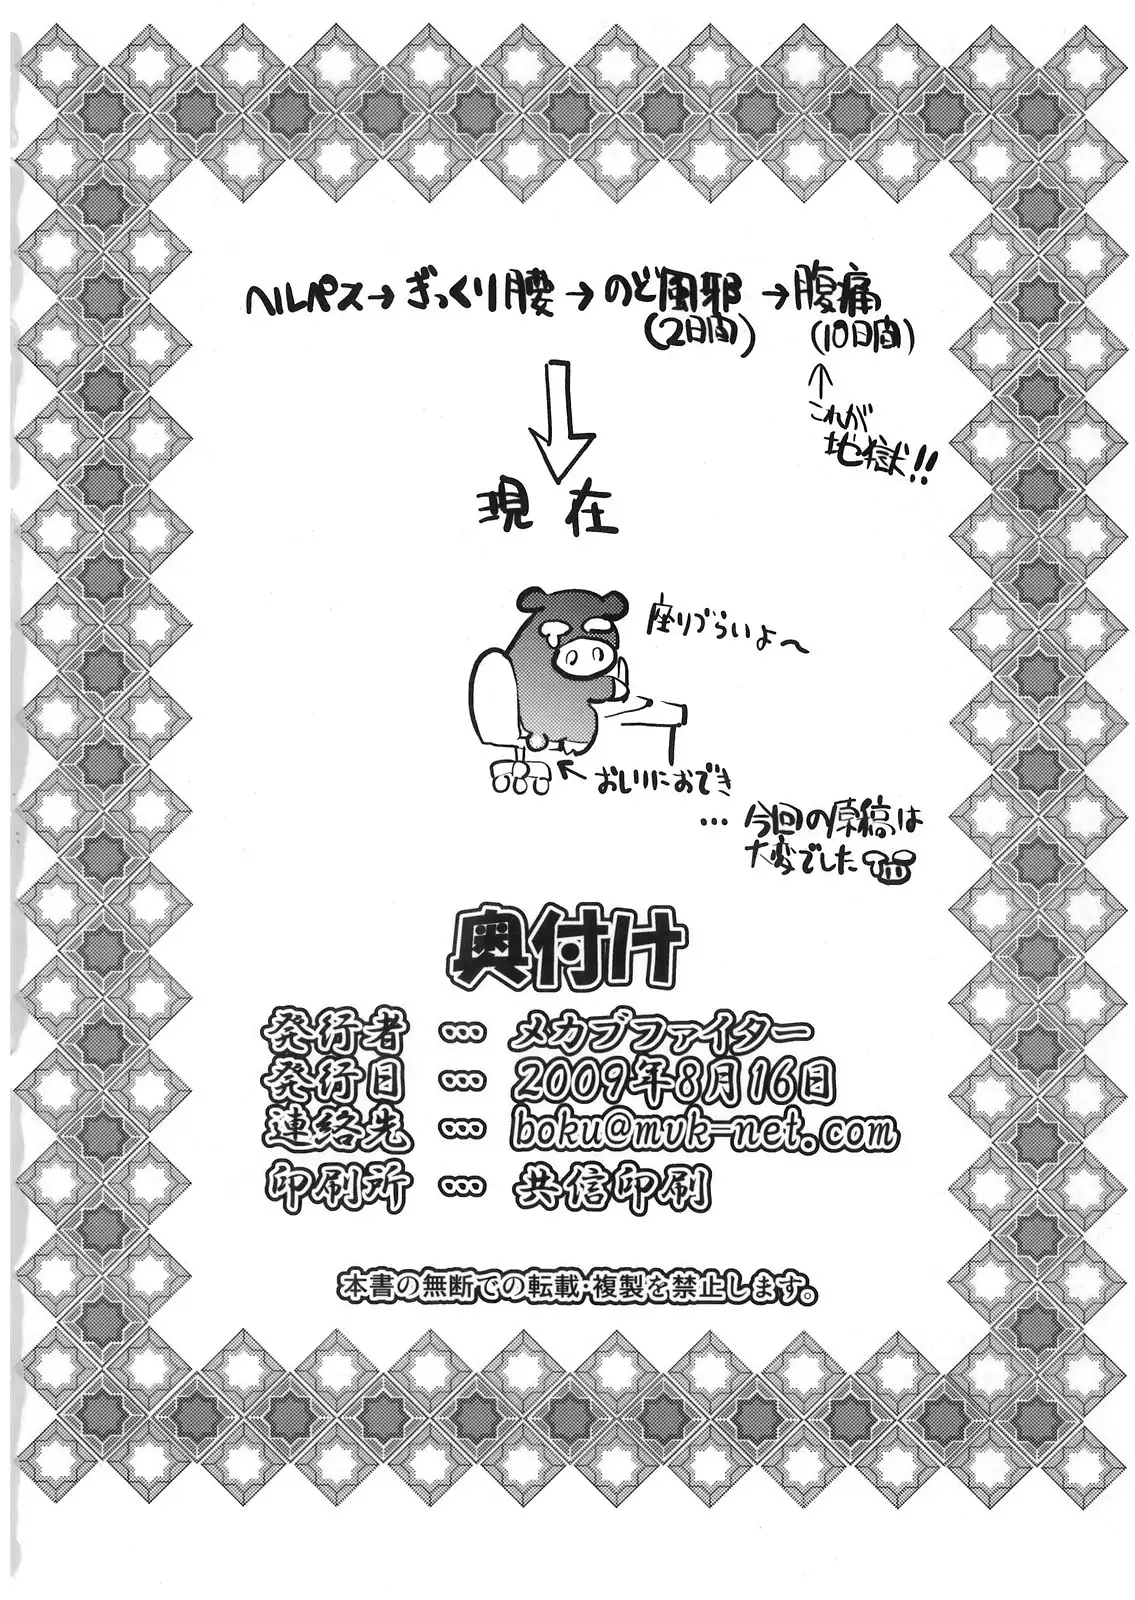 ヘルペス→ぎっくり腰→のど風邪→腹痛
(2日間)
(10日間)
これが
地獄!!
現在
座りづらいよ〜
おしりにおでき
…今回の原稿は
大変でした
奥付け
発行者 … メカブファイター
発行日 … 2009年8月16日
連絡先 … boku@mvk-net.com
印刷所 … 共信印刷
本書の無断での転載・複製を禁止します。